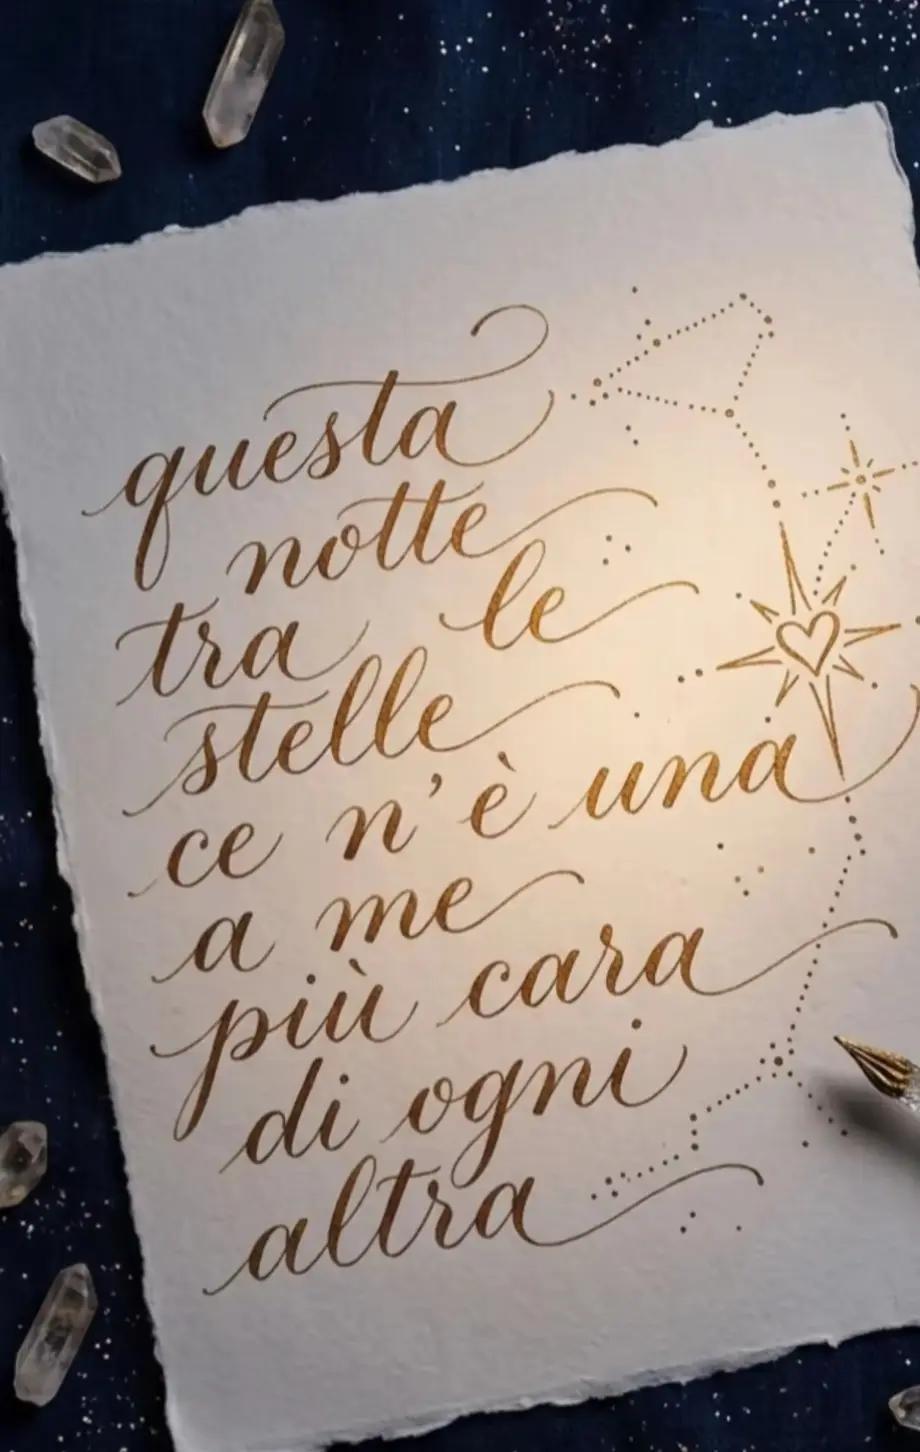 questa
notte
tra le
stelle
ce n'è una
a me
più cara
di ogni
altra